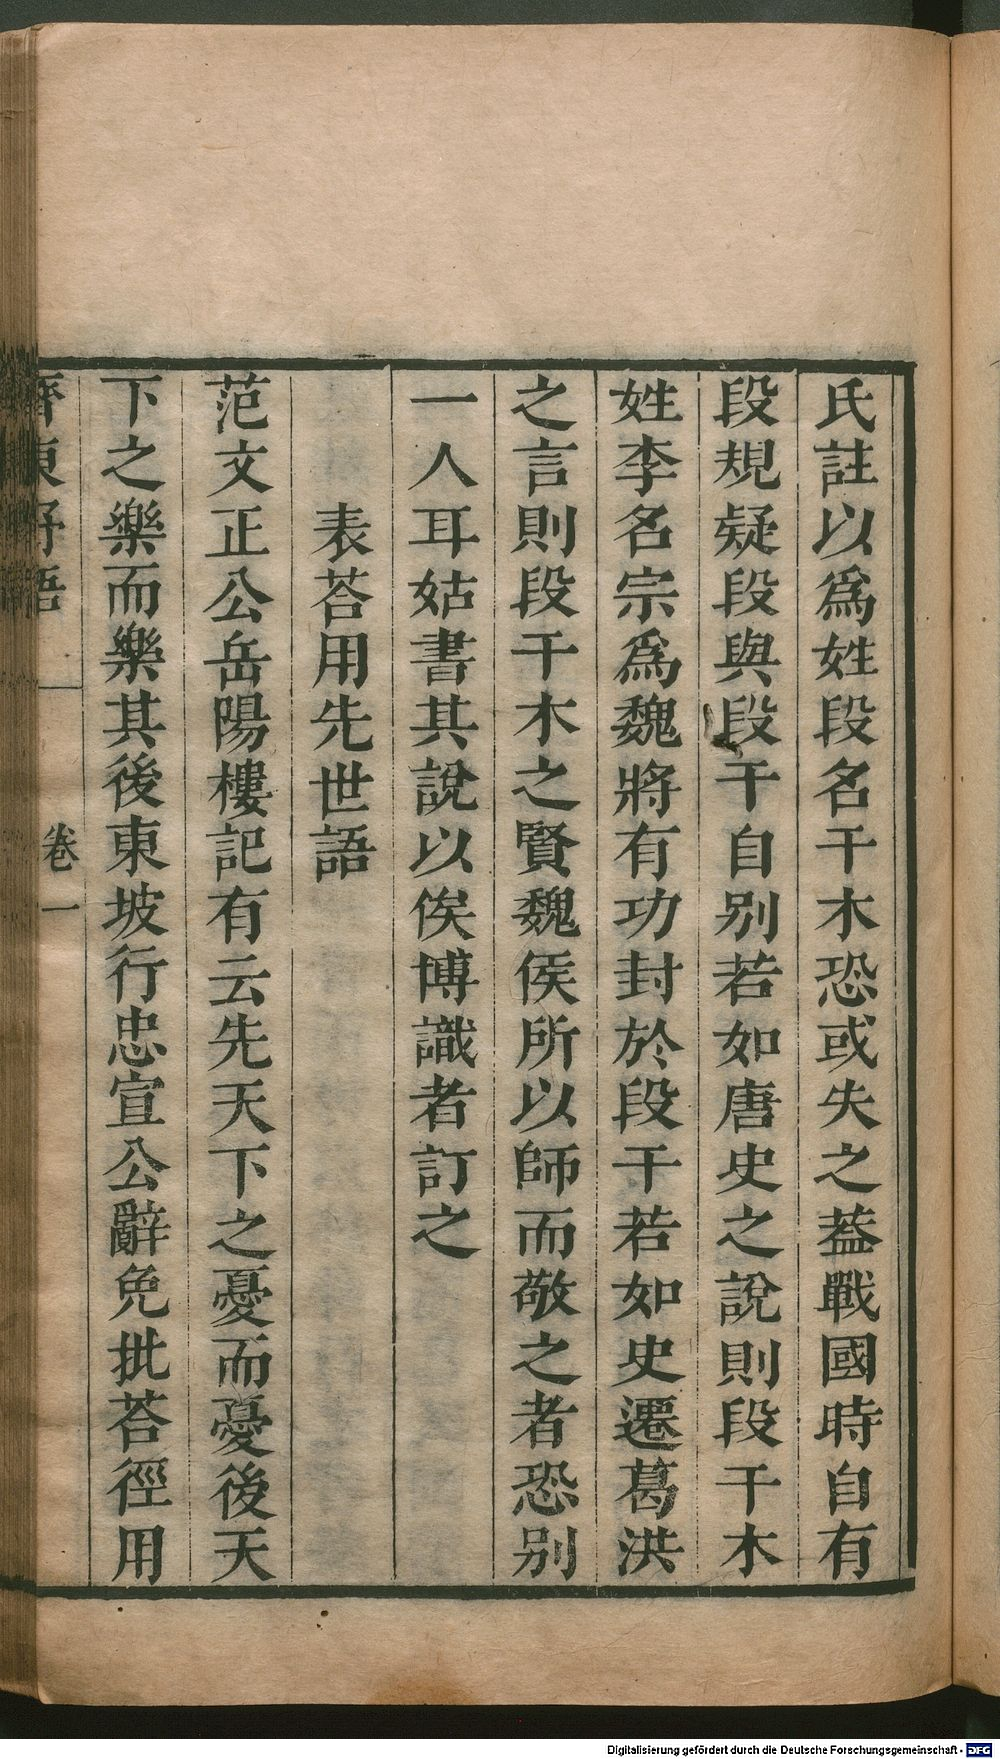 氏註以爲姓段名干木恐或失之葢戰國時自有
段規疑段與段干自别若如唐史之說則段干木
姓李名宗爲魏將有功封於段干若如史遷葛洪
之言則段干木之賢魏侯所以師而敬之者恐别
一人耳姑書其說以俟博識者訂之
表荅用先世語
范文正公岳陽樓記有云先天下之憂而憂後天
下之樂而樂其後東坡行忠宣公辭免批荅徑用
齊東野語
卷一
Digitalisierung gefördert durch die Deutsche Forschungsgemeinschaft - DFG